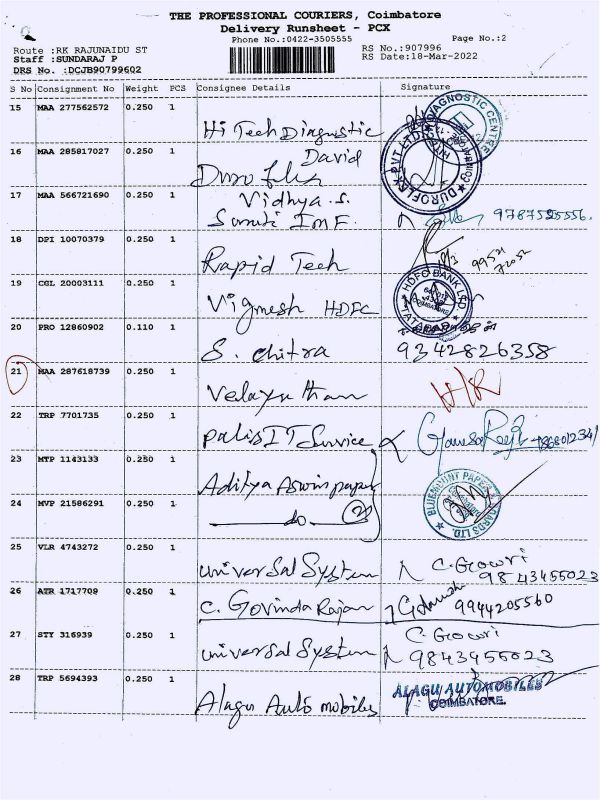 THE PROFESSIONAL COURIERS, Coimbatore
Delivery Runsheet - PCX
Phone No.:0422-3505555
Page No.:2
Route :RK RAJUNAIDU ST
RS No.:907996
Staff :SUNDARAJ P
RS Date:18-Mar-2022
DRS No. :DCJB90799602
S No Consignment No Weight PCS Consignee Details Signature
15 MAA 277562572 0.250 1
Hi Tech Diagnostic
DIAGNOSTIC CENTRE
16 MAA 285817027 0.250 1 David
Duroflex
DUROFLEX PVT LTD
17 MAA 566721690 0.250 1 Vidhya.S.
9787525556.
18 DPI 10070379 0.250 1
Rapid Tech
19 CGL 20003111 0.250 1
Vignesh HDFC
HDFC BANK LTD
20 PRO 12860902 0.110 1
S. chitra 9342826358
21 MAA 287618739 0.250 1
Velayuthan
22 TRP 7701735 0.250 1
23 MTP 1143133 0.250 1
Aditya Aswin paper
24 MVP 21586291 0.250 1
do 2
BLUEMOUNT PAPER BOARDS LTD.
25 VLR 4743272 0.250 1
universal System C. Gowri
9843455023
26 ATR 1717709 0.250 1
C. Govinda Rajan 9944205560
27 STY 316939 0.250 1 C. Gowri
universal System 9843455023
28 TRP 5694393 0.250 1
Alagu Auto mobiles
ALAGU AUTOMOBILES
COIMBATORE.